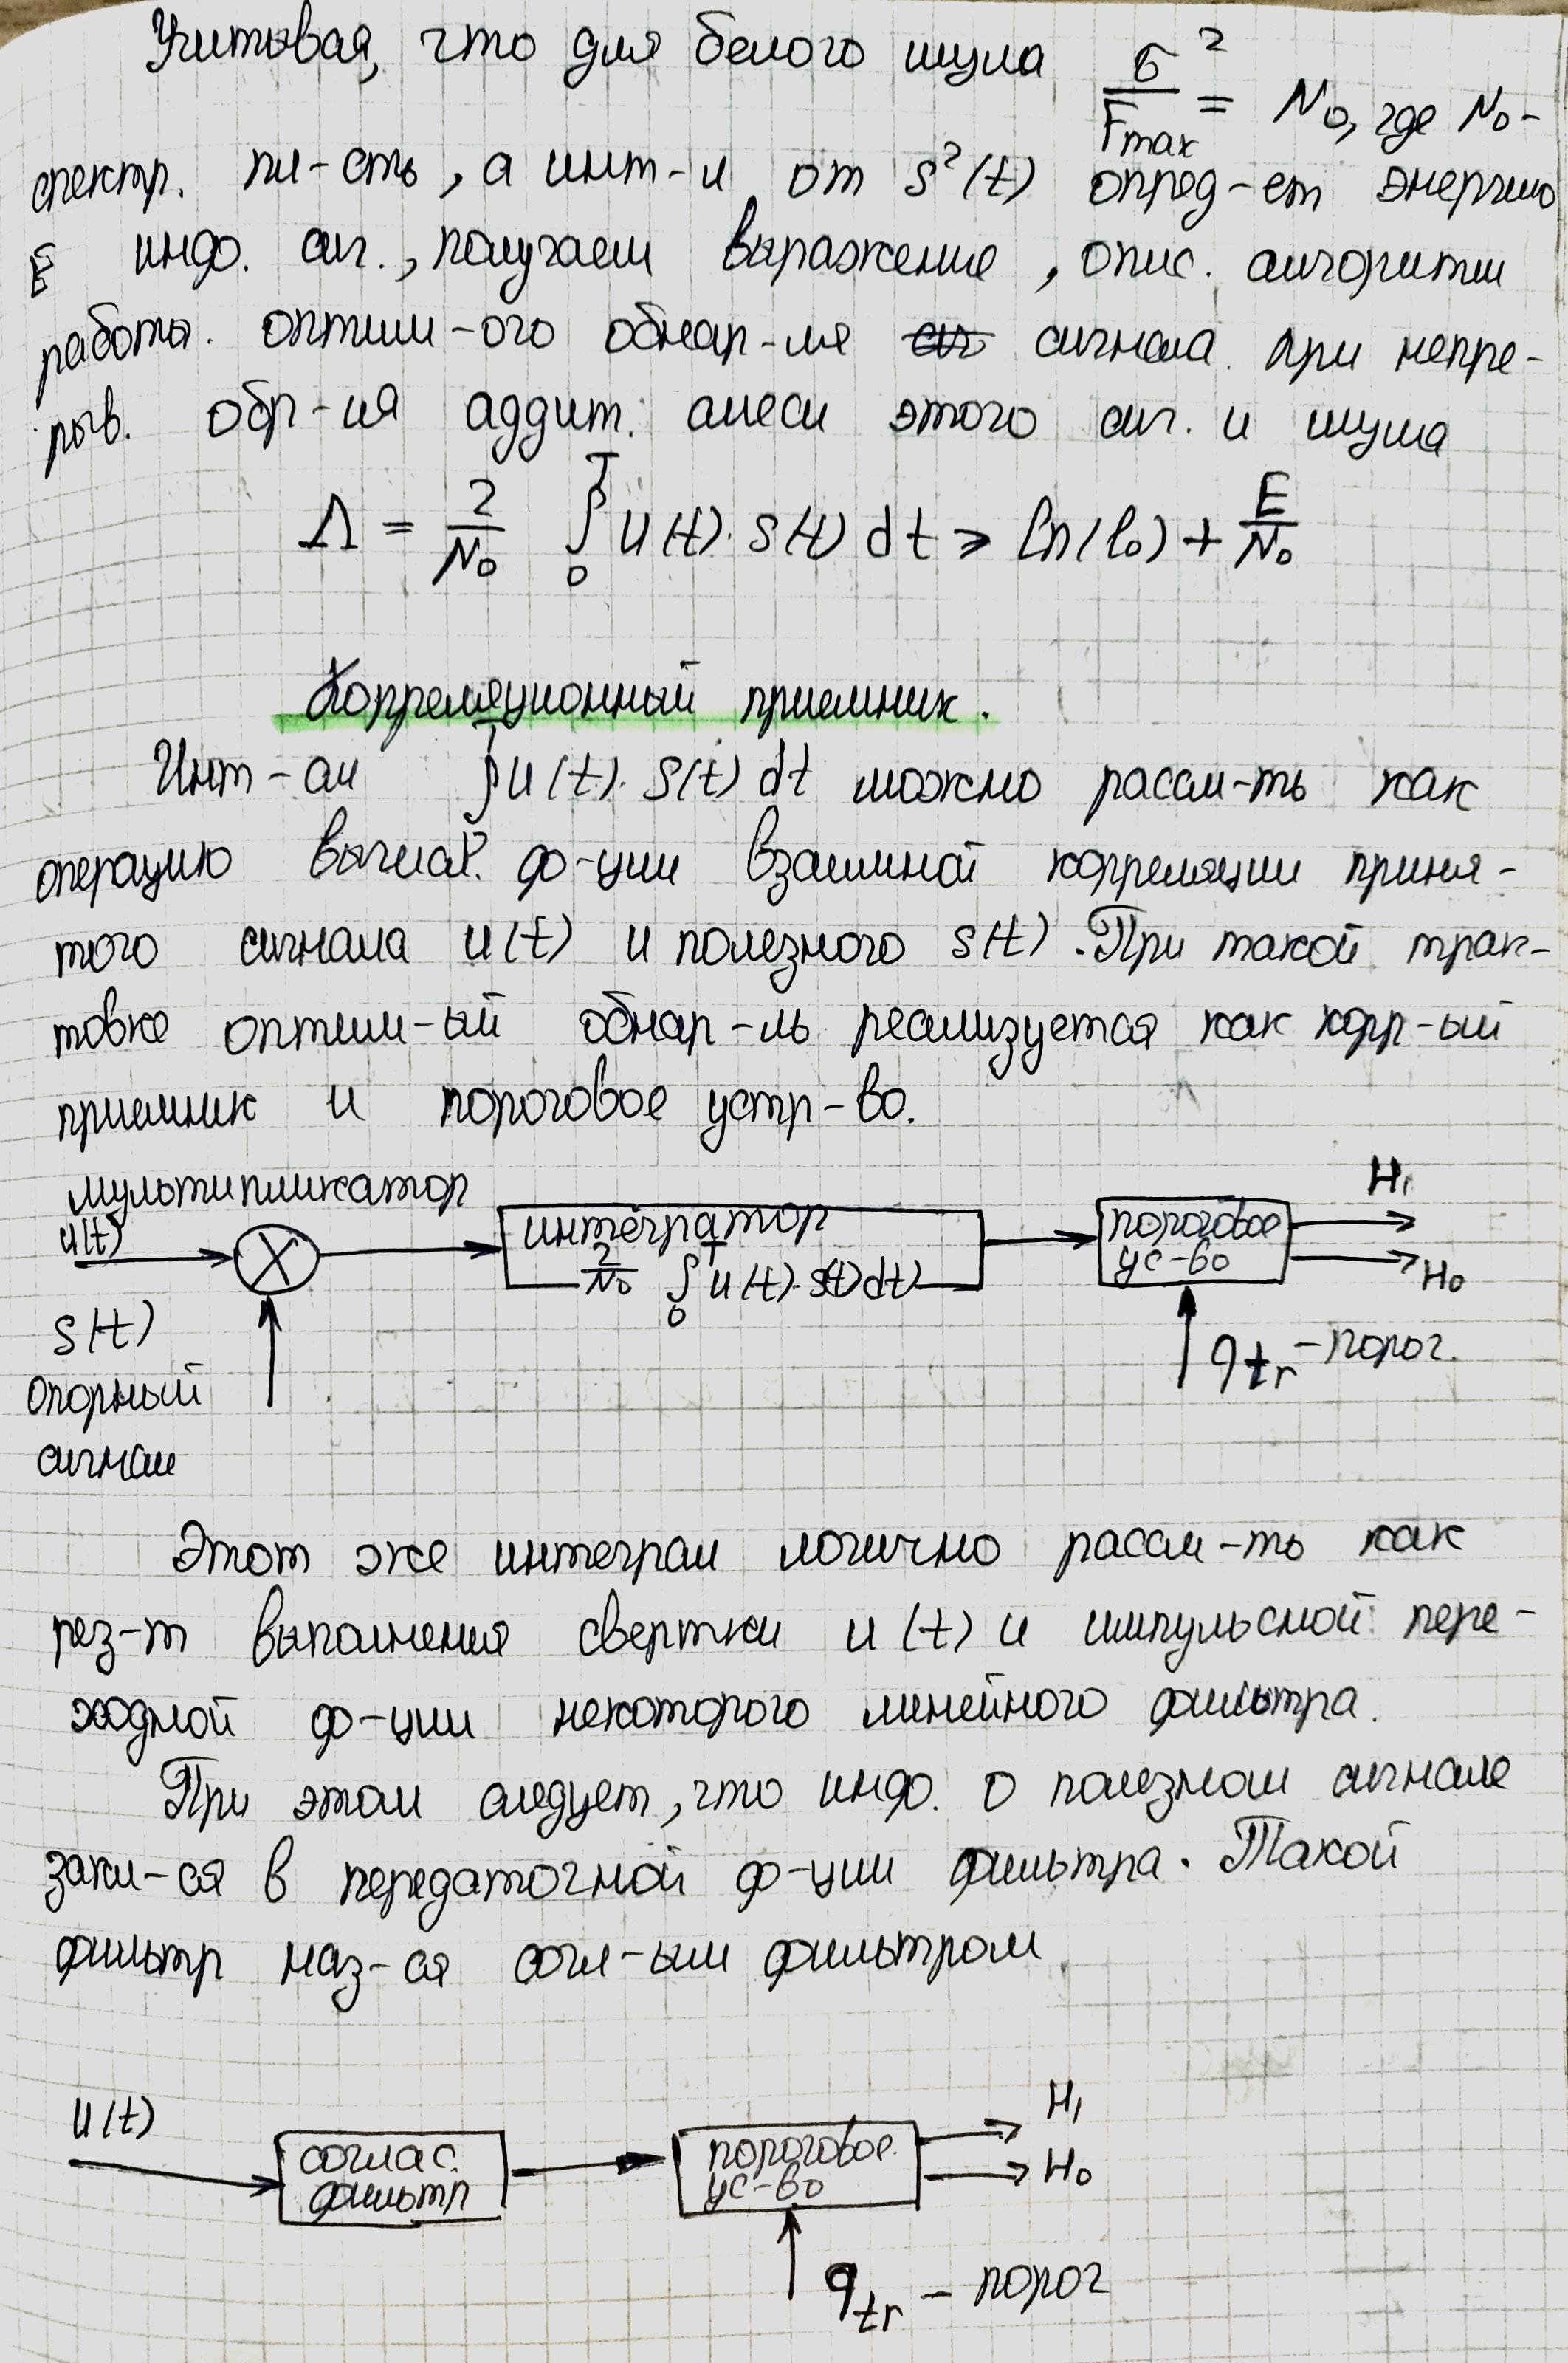 Учитывая, что для белого шума σ²/Fmax = N₀, где N₀ -
спектр. пл-сть, а инт-л от s²(t) опред-ет энергию
E инфо. сиг., получаем выражение, опис. алгоритм
работы. оптим-ого обнар-ля сигнала при непре-
рыв. обр-ия аддит. смеси этого сиг. и шума
Λ = 2/N₀ ∫₀ᵀ u(t)·s(t) dt ≥ ln(l₀) + E/N₀
Корреляционный приемник.
Инт-ал ∫₀ᵀ u(t)·s(t) dt можно рассм-ть как
операцию вычисл. ф-ции взаимной корреляции приня-
того сигнала u(t) и полезного s(t). При такой трак-
товке оптим-ый обнар-ль реализуется как корр-ый
приемник и пороговое устр-во.
мультипликатор
u(t) X
интегратор
2/N₀ ∫₀ᵀ u(t)·s(t)dt)
пороговое
ус-во
H₁
H₀
s(t)
опорный
сигнал
qtr - порог.
Этот же интеграл логично рассм-ть как
рез-т выполнения свертки u(t) и импульсной пере-
ходной ф-ции некоторого линейного фильтра.
При этом следует, что инфо. о полезном сигнале
закл-ся в передаточной ф-ции фильтра. Такой
фильтр наз-ся согл-ым фильтром
u(t)
соглас.
фильтр
пороговое
ус-во
H₁
H₀
qtr - порог